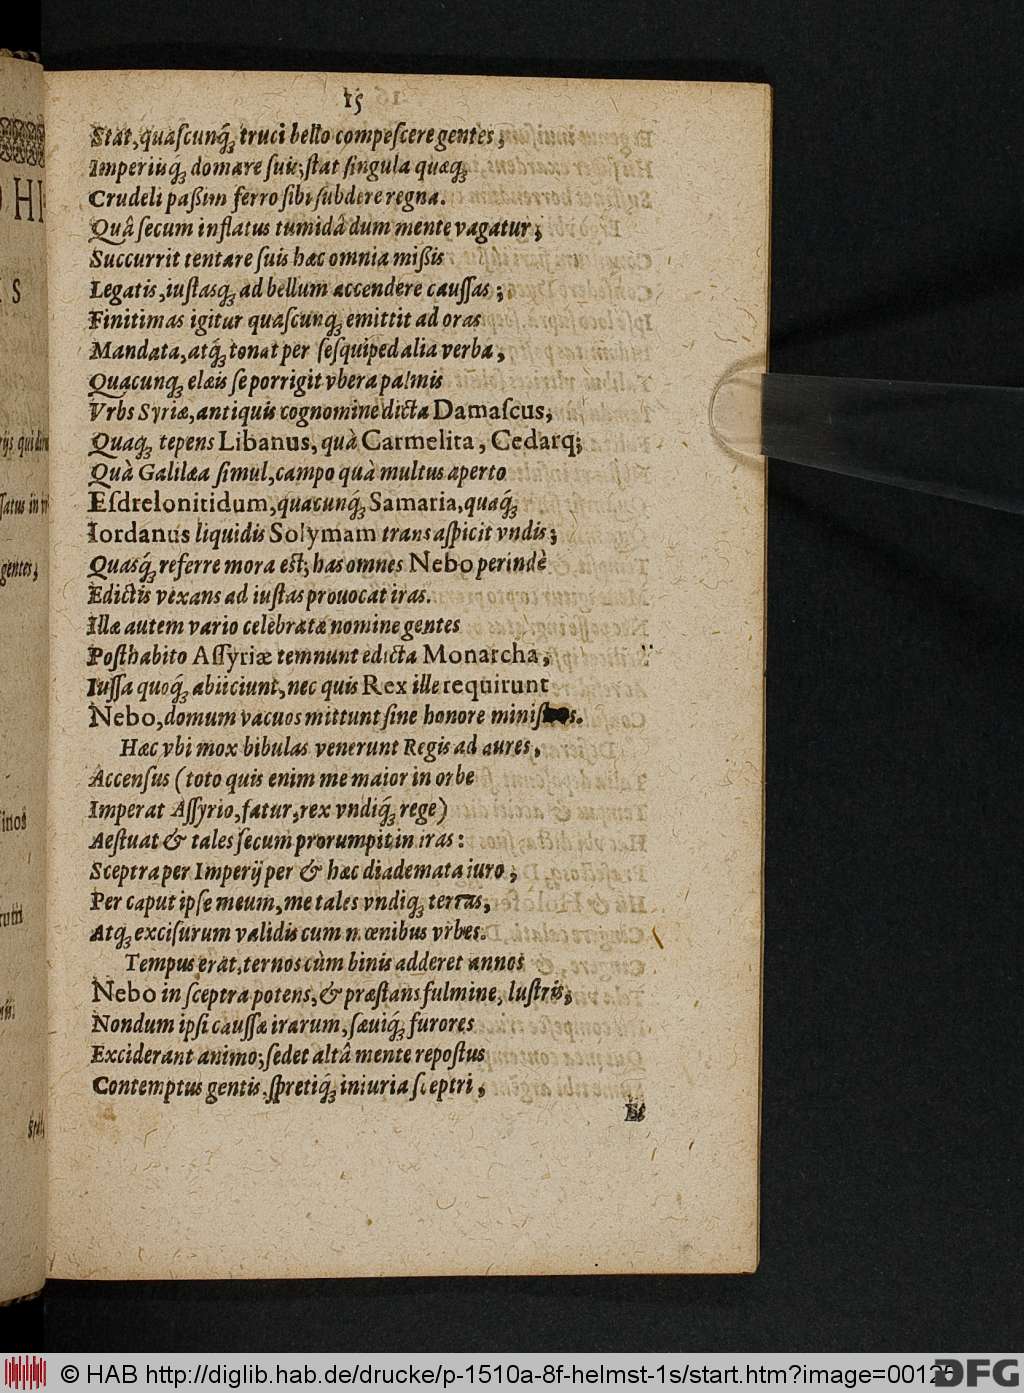 15
Stat, quaſcunq́; truci bello compeſcere gentes,
Imperiisq́; domare ſuis; ſtat ſingula quæq;
Crudeli paßim ferro ſibi ſubdere regna.
Quâ ſecum inflatus tumidâ dum mente vagatur,
Succurrit tentare ſuis hæc omnia mißis
Legatis, iuſtasq; ad bellum accendere cauſſas;
Finitimas igitur quaſcunq; emittit ad oras
Mandata, atq́; tonat per ſeſquipedalia verba,
Quacunq; elæis ſe porrigit vbera palmis
Vrbs Syriæ, antiquis cognomine dicta Damaſcus,
Quaq; tepens Libanus, quà Carmelita, Cedarq;
Quà Galilæa ſimul, campo quà multus aperto
Eſdrelonitidum, quacunq́; Samaria, quaq́;
Iordanus liquidis Solymam trans aſpicit vndis;
Quasq́; referre mora eſt; has omnes Nebo perindè
Edictis vexans ad iuſtas prouocat iras.
Illæ autem vario celebratæ nomine gentes
Poſthabito Aſſyriæ temnunt edicta Monarcha,
Iuſſa quoq́; abiiciunt, nec quis Rex ille requirunt
Nebo, domum vacuos mittunt ſine honore
Hæc vbi mox bibulas venerunt Regis ad aures,
Accenſus (toto quis enim me maior in orbe
Imperat Aſſyrio, fatur, rex vndiq́; rege)
Aeſtuat & tales ſecum prorumpit in iras:
Sceptra per Imperij per & hæc diademata iuro,
Per caput ipſe meum, me tales vndiq; terras,
Atq; exciſurum validis cum mœnibus vrbes.
Tempus erat, ternos cùm binis adderet annos
Nebo in ſceptra potens, & præſtans fulmine, luſtris,
Nondum ipſi cauſſæ irarum, ſæuiq́; furores
Exciderant animo; ſedet altâ mente repoſtus
Contemptus gentis, ſpretiq́; iniuria ſceptri,
Et
© HAB http://diglib.hab.de/drucke/p-1510a-8f-helmst-1s/start.htm?image=00125
DFG